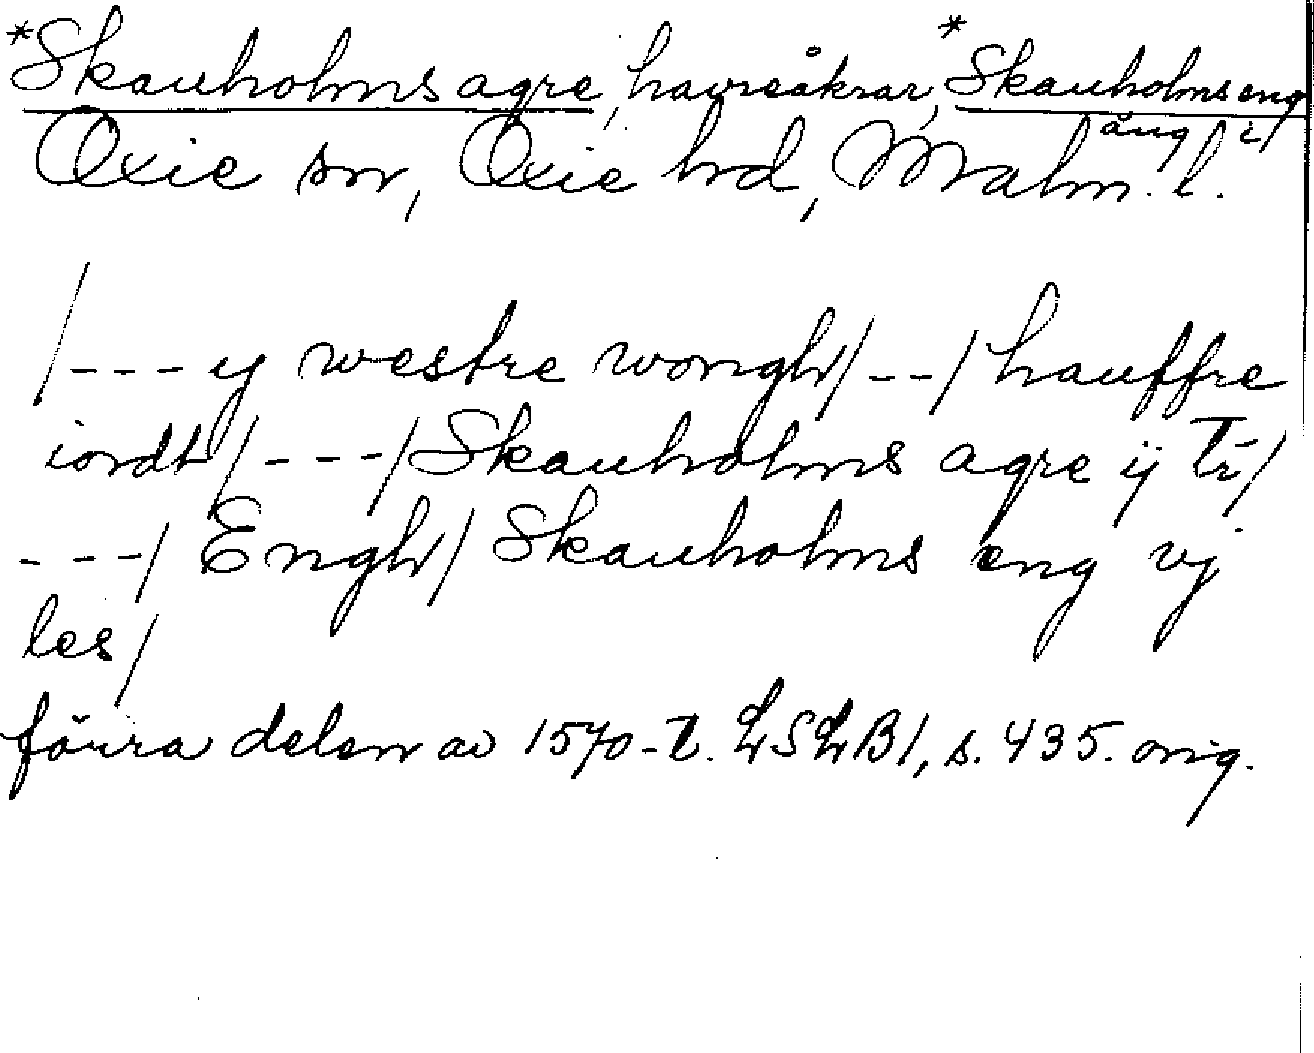 *Skauholms agre, havreåkrar, *Skauholms eng
äng i
Oxie sn, Oxie hd, Malm. l.
/--- y westre wongh/--/hauffre
iordt/---/Skauholms agre ij Tr/
---/ Engh/ Skauholms eng vj
les/
förra delen av 1570-t. LSLB1, s. 435. orig.